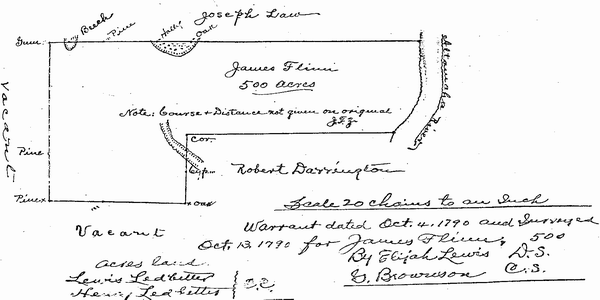 Joseph Law
Gum
Beech
Pine
Holly
Oak
James Flinn
500 acres
Altamaha River
Note: Course & Distance not given on original
Vacant
Cor.
Pine
Robert Darrington
Pinex
x Oak
Scale 20 chains to an Inch
Vacant
Warrant dated Oct. 4, 1790 and Surveyed
Oct. 13, 1790 for James Flinn, 500
acres land.
By Elijah Lewis D.S.
Lewis Ledbetter
Henry Ledbetter
C.C.
G. Brownson C.S.